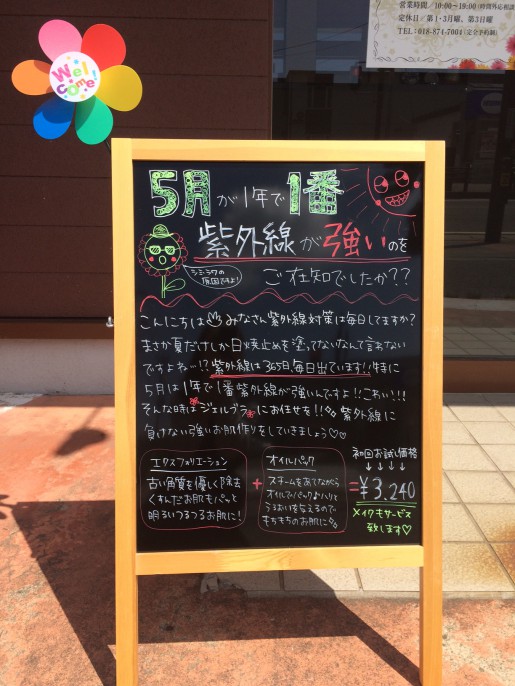 営業時間／10:00～19:00(時間外応相談
定休日／第1・3月曜、第3日曜
TEL：018-874-7004(完全予約制)
Welcome!
5月が1年で1番
紫外線が強いのを
シミ・シワの
原因ですよ!
ご在知でしたか??
こんにちは みなさん紫外線対策は毎日してますか?
まさか夏だけしか日焼止めを塗ってないなんて言わない
ですよね…!?紫外線は365日毎日出ています!!特に
5月は1年で1番紫外線が強いんですよ!!こわい!!!
そんな時はジェルブラにお任せを!! 紫外線に
負けない強いお肌作りをしていきましょう♡♡
エクスフォリエーション
古い角質を優しく除去
くすんだお肌もパッと
明るいつるつるお肌に!
+
オイルパック
スチームをあてながら
オイルでパック♪ハリと
うるおいを与えるので
もちもちのお肌に
初回お試し価格
↓↓↓↓
=¥3,240
メイクもサービス
致します♡